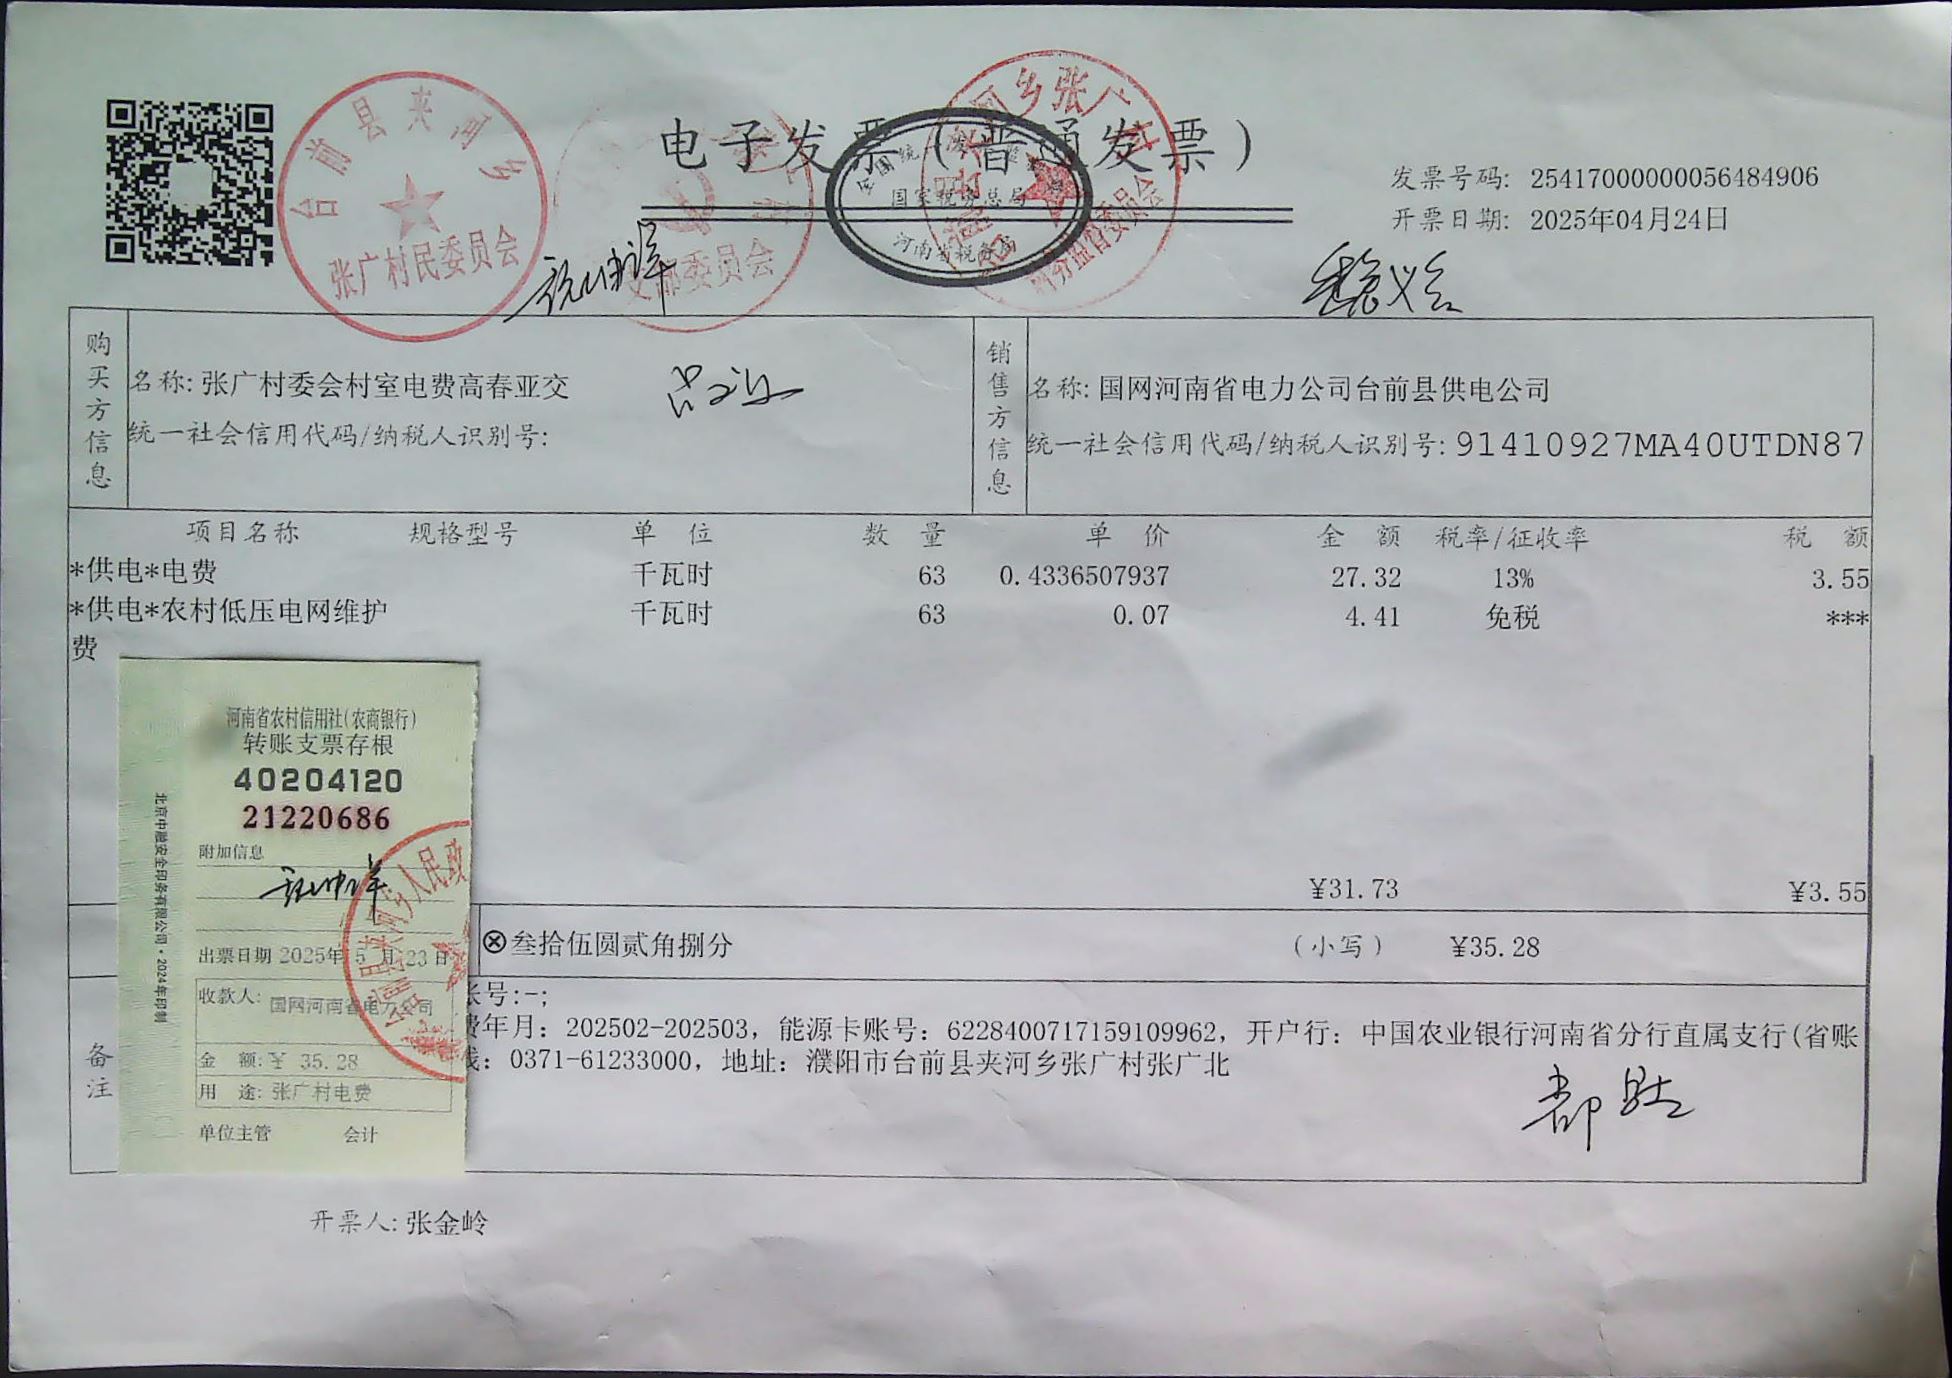 电子发票（普通发票）
全国统一发票监制章
国家税务总局
河南省税务局
发票号码: 25417000000056484906
开票日期: 2025年04月24日
台前县夹河乡
张广村民委员会
支部委员会
河乡张广村
购买方信息
名称: 张广村委会村室电费高春亚交
统一社会信用代码/纳税人识别号:
销售方信息
名称: 国网河南省电力公司台前县供电公司
统一社会信用代码/纳税人识别号: 91410927MA40UTDN87
项目名称 规格型号 单 位 数 量 单 价 金 额 税率/征收率 税 额
*供电*电费 千瓦时 63 0.4336507937 27.32 13% 3.55
*供电*农村低压电网维护 千瓦时 63 0.07 4.41 免税 ***
费
¥31.73 ¥3.55
ⓧ叁拾伍圆贰角捌分 （小写） ¥35.28
备注
账号:-;
费年月: 202502-202503, 能源卡账号: 6228400717159109962, 开户行: 中国农业银行河南省分行直属支行(省账
线: 0371-61233000, 地址: 濮阳市台前县夹河乡张广村张广北
河南省农村信用社（农商银行）
转账支票存根
40204120
21220686
附加信息
出票日期 2025年 5 月 23 日
收款人: 国网河南省电力公司
金 额: ¥ 35.28
用 途: 张广村电费
单位主管 会计
北京中融安全印务有限公司·2024年印制
河乡人民政
开票人: 张金岭